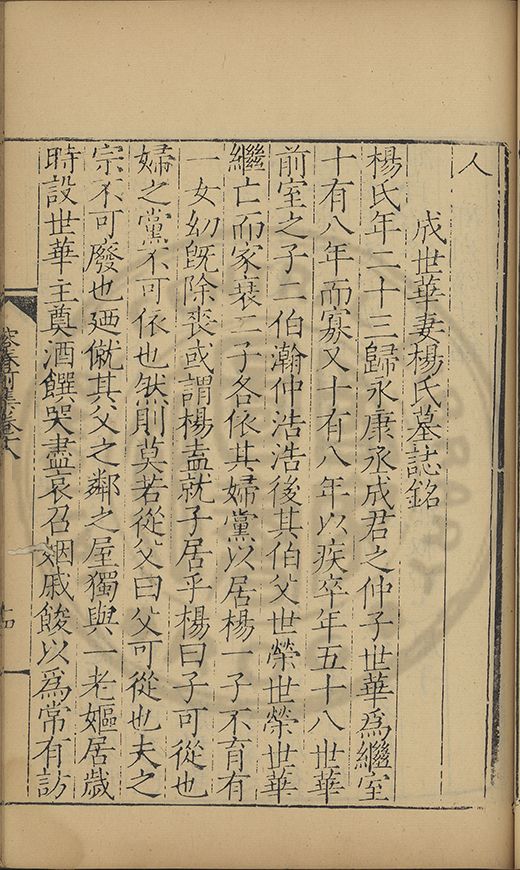 人
成世華妻楊氏墓誌銘
楊氏年二十三歸永康丞成君之仲子世華爲繼室
十有八年而寡又十有八年以疾卒年五十八世華
前室之子二伯瀚仲浩浩後其伯父世榮世榮世華
繼亡而家衰二子各依其婦黨以居楊一子不育有
一女幼旣除喪或謂楊盍就子居乎楊曰子可從也
婦之黨不可依也然則莫若從父曰父可從也夫之
宗不可廢也廼僦其父之鄰之屋獨與一老嫗居歲
時設世華主奠酒饌哭盡哀召姻戚餕以爲常有訪
十四